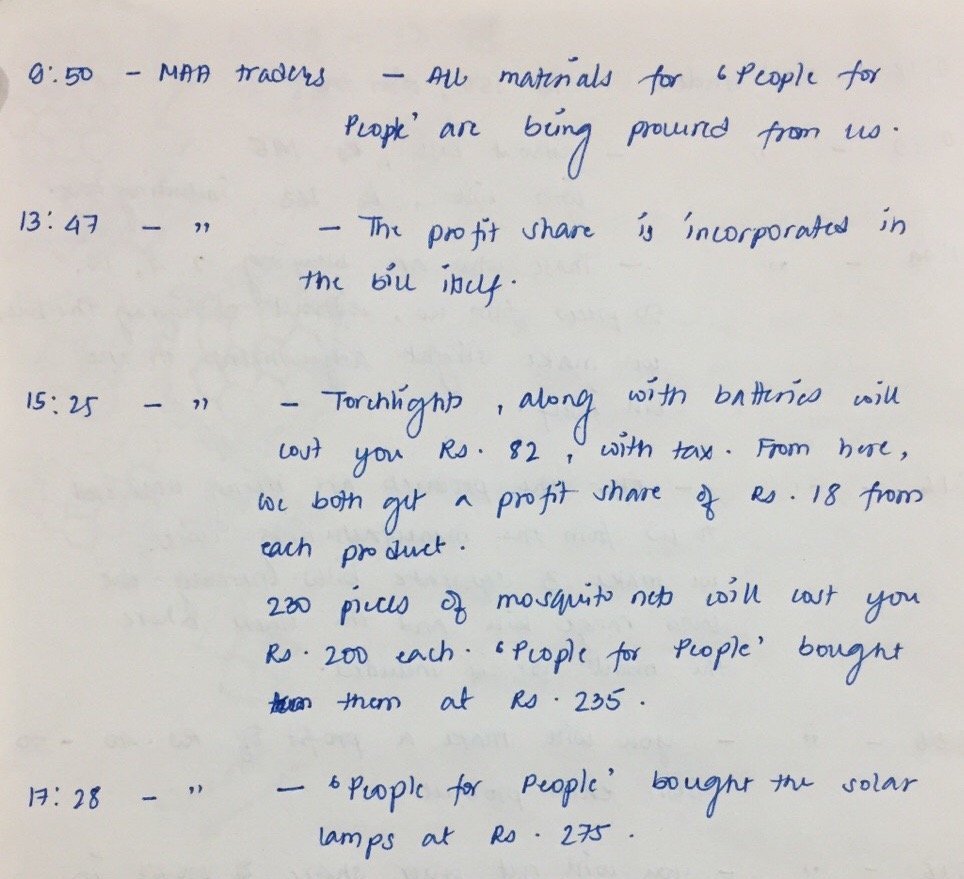 9:50 - MAA traders - All materials for 'People for
People' are being procured from us.
13:47 - " - The profit share is incorporated in
the bill itself.
15:25 - " - Torchlights, along with batteries will
cost you Rs. 82, with tax. From here,
we both get a profit share of Rs. 18 from
each product.
230 pieces of mosquito nets will cost you
Rs. 200 each. 'People for People' bought
them at Rs. 235.
17:28 - " - 'People for People' bought the solar
lamps at Rs. 275.